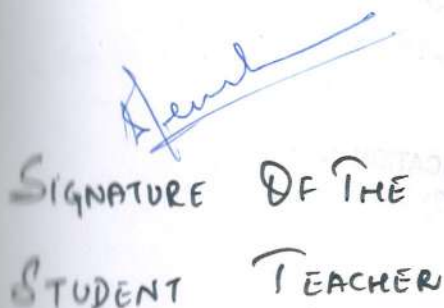 SIGNATURE OF THE
STUDENT TEACHER